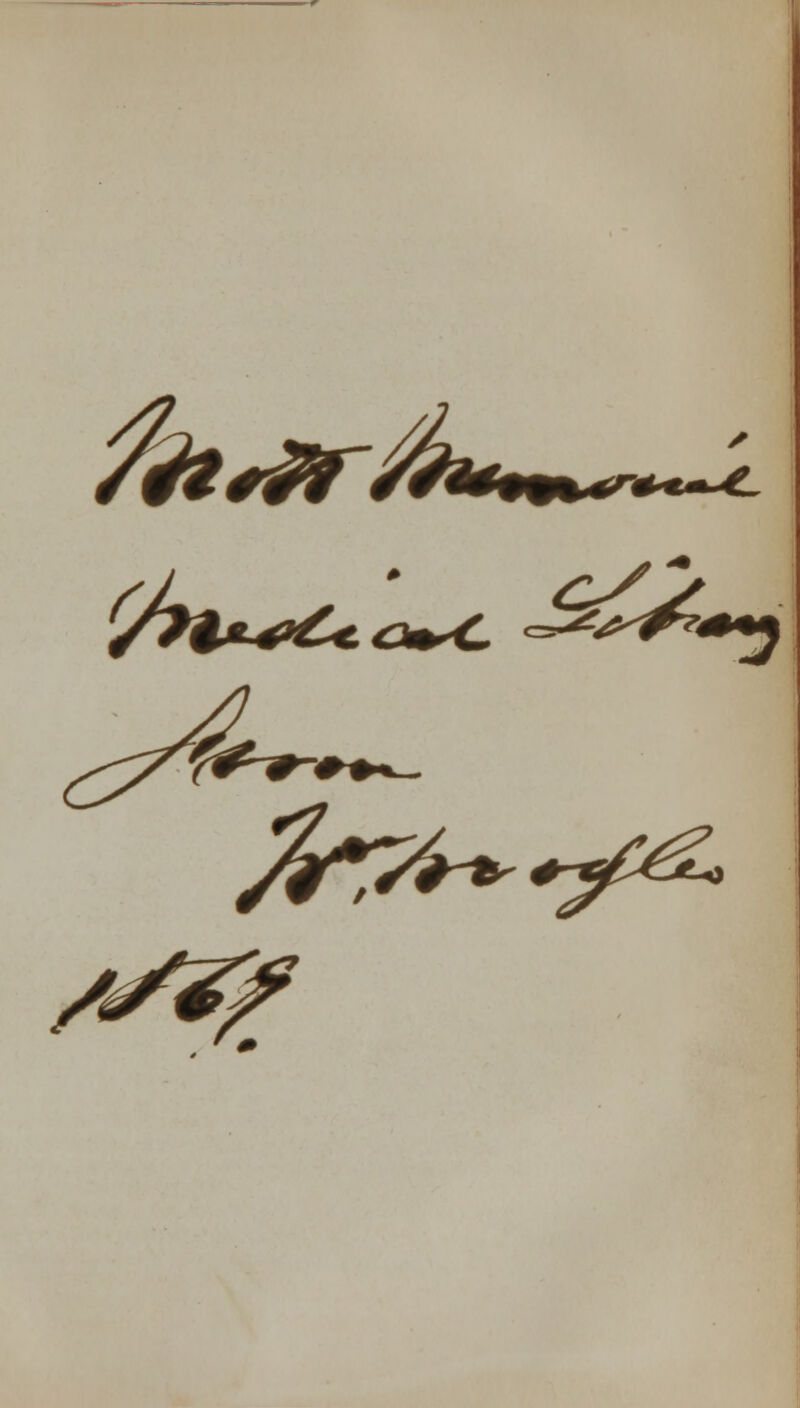 Mott Memorial
Medical Library
from
Wm.
1869.